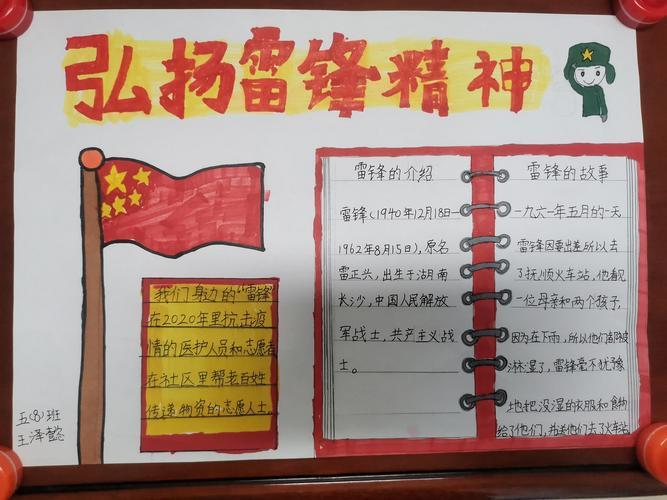 弘扬雷锋精神
我们身边的“雷锋”
在2020年里抗击疫
情的医护人员和志愿者
在社区里帮老百姓
传递物资的志愿人士。
雷锋的介绍
雷锋(1940年12月18日—
1962年8月15日),原名
雷正兴,出生于湖南
长沙,中国人民解放
军战士,共产主义战
士。
雷锋的故事
一九六一年五月的一天
雷锋因要出差所以去
了抚顺火车站,他看见
一位母亲和两个孩子,
因为在下雨,所以他们都被
淋湿了,雷锋毫不犹豫
地把没湿的衣服和食物
给了他们,并送他们去了火车站
五(8)班
王泽懿